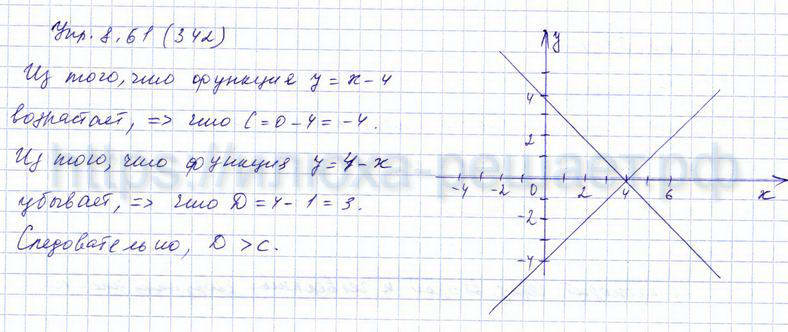 Упр. 8.61 (342)
Из того, что функция y = x - 4
возрастает, => что C = 0 - 4 = -4.
Из того, что функция y = 4 - x
убывает, => что D = 4 - 1 = 3.
Следовательно, D > c.
y
4
2
-4 -2 0 2 4 6 x
-2
-4